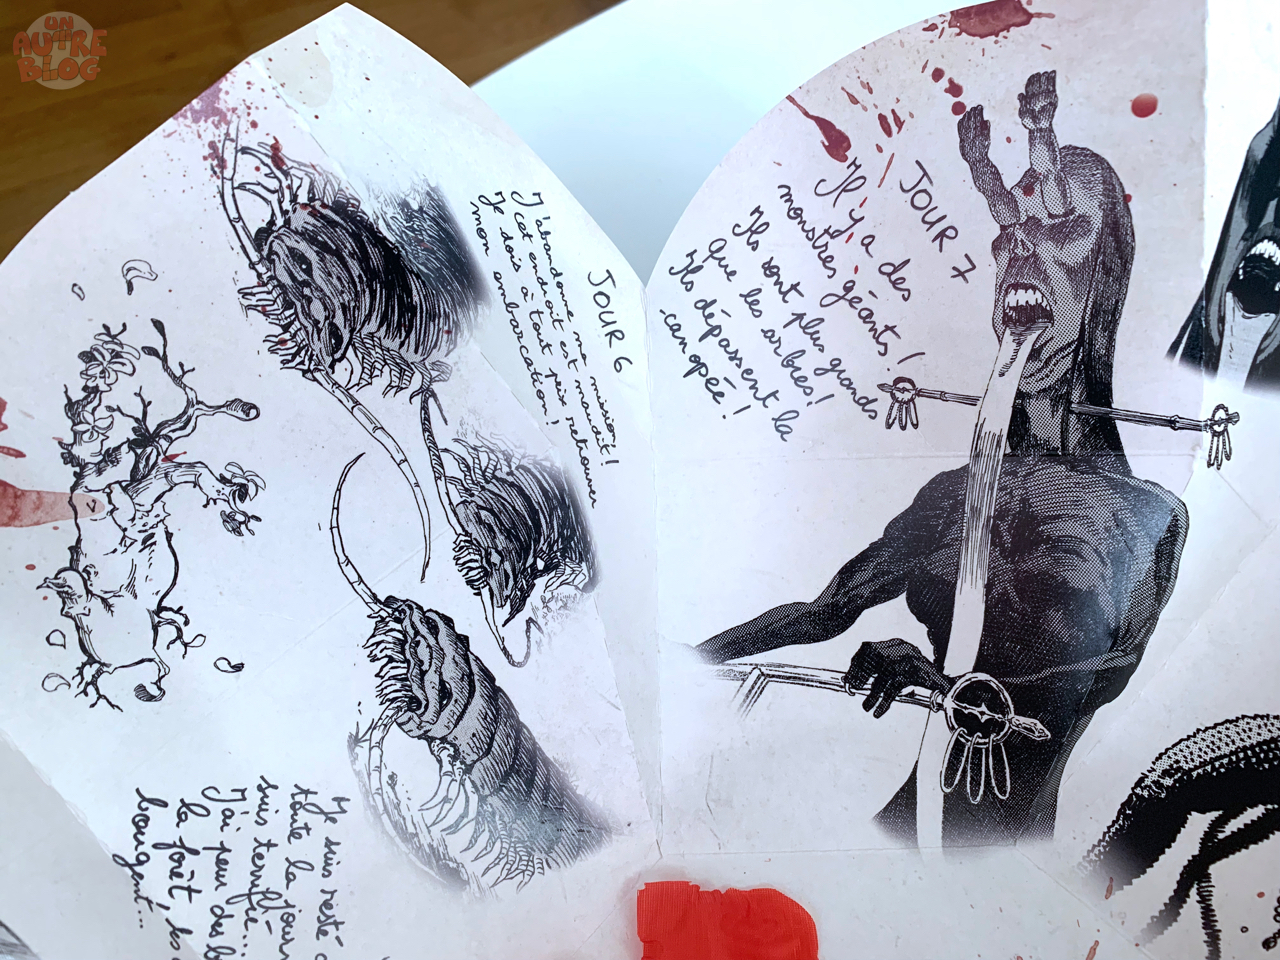 UN
AUTRE
BLOG
JOUR 6
J'abandonne ma mission,
cet endroit est maudit!
Je dois à tout prix retrouver
mon embarcation!
JOUR 7
Il y a des
monstres géants!
Ils sont plus grands
que les arbres!
Ils dépassent la
canopée!
Je suis resté
toute la jour
suis terrifié...
J'ai peur des b
la forêt, les
bougent...